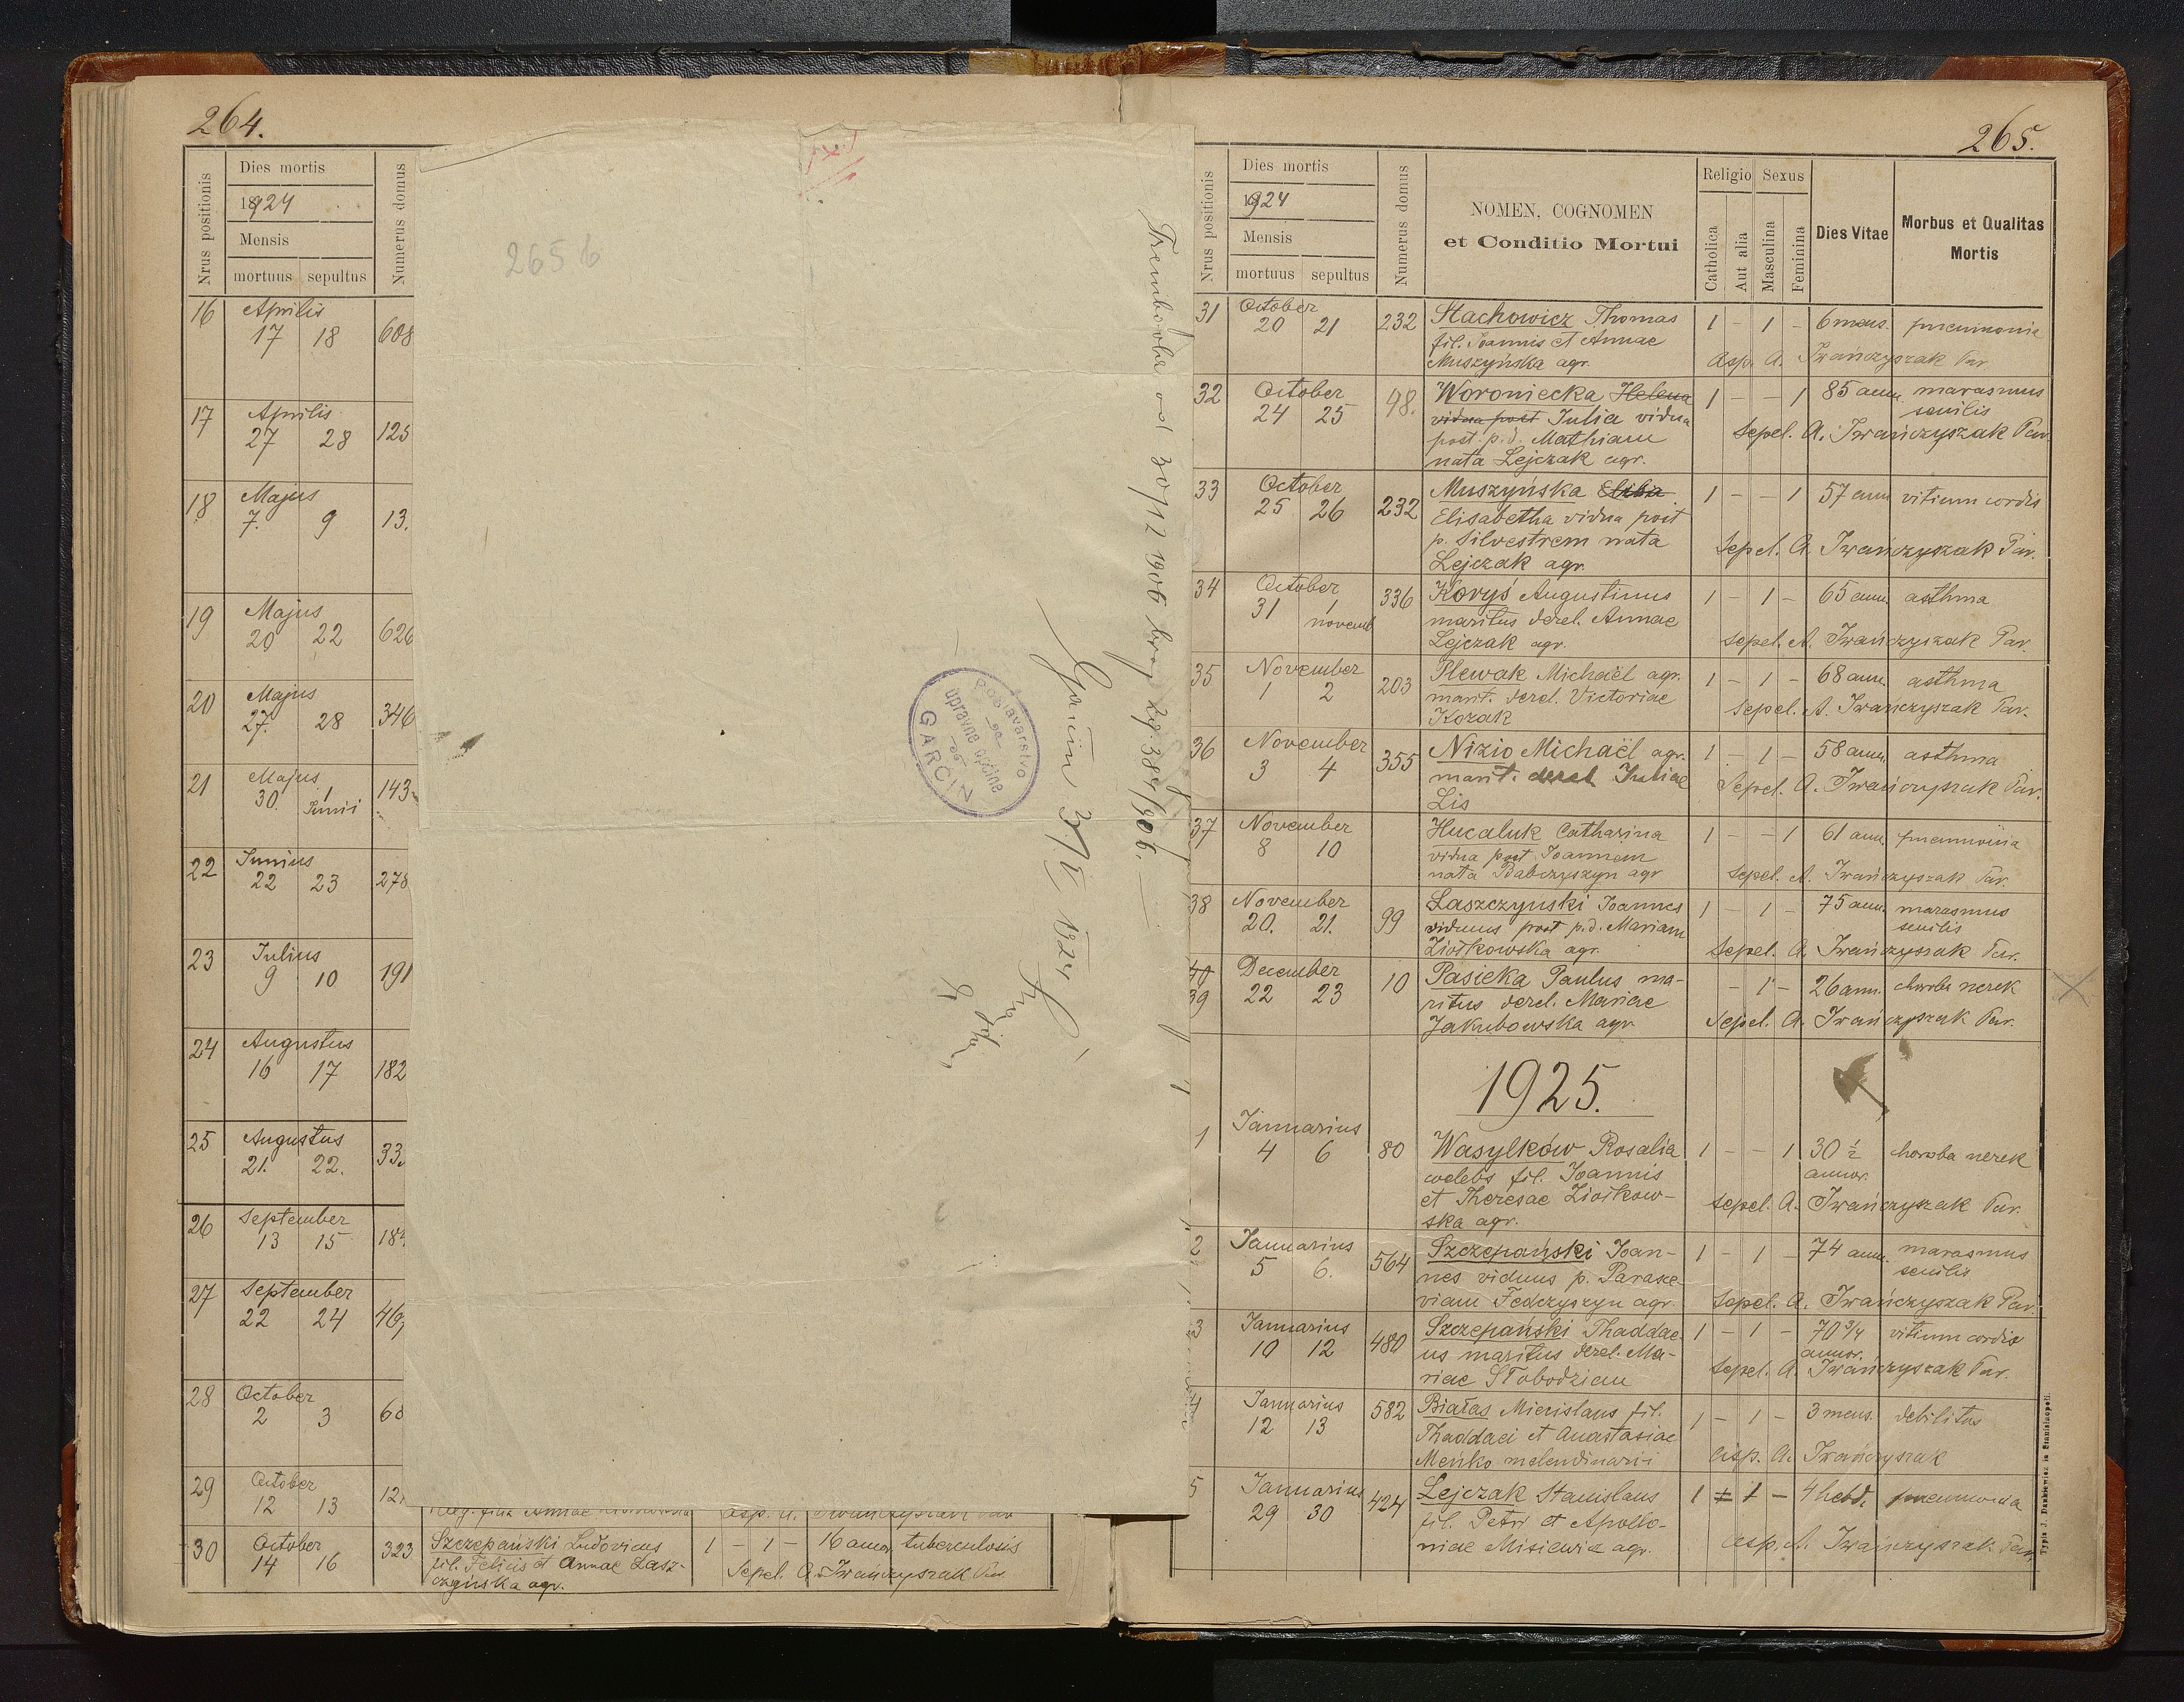 264.
Nrus positionis
Dies mortis
1924
Mensis
mortuus sepultus
Numerus domus
16 Aprilis 17 18 608
17 Aprilis 27 28 125
18 Majus 7. 9 13.
19 Majus 20 22 626
20 Majus 27. 28 346
21 Majus 30. 1 Junii 143
22 Junius 22 23 278
23 Julius 9 10 191
24 Augustus 16 17 182
25 Augustus 21. 22. 33
26 September 13 15 18
27 September 22 24 469
28 October 2 3 60
29 October 12 13 12
asp. A. Iwańczyszak Par
30 October 14 16 323 Szczepański Ludovicus 1 - 1 - 16 annor. tuberculosis
fil. Felicis et Annae Lasz- Sepel. A. Iwańczyszak Par.
czyńska agr.
265 b
Trembovla od 30/12 1906 broj 29.384/906.
Garcin 3/V 1924
Poglavarstvo
upravne općine
GARCIN
265.
Nrus positionis
Dies mortis
1924
Mensis
mortuus sepultus
Numerus domus
NOMEN, COGNOMEN
et Conditio Mortui
Religio Sexus
Catholica
Aut alia
Masculina
Feminina
Dies Vitae
Morbus et Qualitas
Mortis
31 October 20 21 232 Stachowicz Thomas 1 - 1 - 6 mens. pneumonia
fil. Joannis et Annae
Muszyńska agr. asp. A. Iwańczyszak Par.
32 October 24 25 98. Woroniecka Helena 1 - - 1 85 ann. marasmus
vidua post Julia vidua senilis
post p.d. Mathiam Sepel. A. Iwańczyszak Par.
nata Lejczak agr.
33 October 25 26 232 Muszyńska 1 - - 1 57 ann vitium cordis
Elisabetha vidua post
p. Silvestrem nata Sepel. A. Iwańczyszak Par.
Lejczak agr.
34 October 31 1 novemb 336 Koryś Augustinus 1 - 1 - 65 ann. asthma
maritus derel. Annae
Lejczak agr. Sepel. A. Iwańczyszak Par.
35 November 1 2 203 Plewak Michaël agr. 1 - 1 - 68 ann. asthma
marit. derel. Victoriae Sepel. A. Iwańczyszak Par.
Kozak
36 November 3 4 355 Nizio Michaël agr. 1 - 1 - 58 ann. asthma
marit. derel. Juliae Sepel. A. Iwańczyszak Par.
Lis
37 November 8 10 Hucaluk Catharina 1 - - 1 61 ann. pneumonia
vidua post Joannem
nata Babczyszyn agr Sepel. A. Iwańczyszak Par.
38 November 20. 21. 99 Laszczynski Joannes 1 - 1 - 75 ann. marasmus
viduus post p.d. Mariam senilis
Ziółkowska agr. Sepel. A. Iwańczyszak Par.
40
39 December 22 23 10 Pasieka Paulus ma- - 1 - 26 ann. choroba nerek
ritus derel. Mariae
Jakubowska agr Sepel. A. Iwańczyszak Par.
1925.
1 Januarius 4 6 80 Wasylków Rosalia 1 - - 1 30 1/2 choroba nerek
coelebs fil. Joannis annor.
et Theresae Ziółkow- Sepel. A. Iwańczyszak Par.
ska agr.
2 Januarius 5 6. 564 Szczepański Joan- 1 - 1 - 74 ann. marasmus
nes viduus p. Parasce- senilis
viam Fedczyszyn agr Sepel. A. Iwańczyszak Par.
3 Januarius 10 12 480 Szczepański Thaddae- 1 - 1 - 70 3/4 vitium cordis
us maritus derel. Ma- annor.
riae Słobodzian Sepel. A. Iwańczyszak Par.
4 Januarius 12 13 582 Białas Micislaus fil. 1 - 1 - 3 mens. debilitas
Thaddaei et Anastasiae
Meńko molendinarii asp. A. Iwańczyszak
5 Januarius 29 30 424 Lejczak Stanislaus 1 - 1 - 4 hebd. pneumonia
fil. Petri et Apollo-
niae Misiewicz agr. asp. A. Iwańczyszak. Par.
Typis J. Dankiewicz in Stanislaopoli.